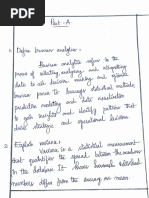 Part-A
1. Define business analytics.
Business analytics refers to the
process of collecting, analyzing, and
data to aid decision making and
business process. It leverages statistical methods,
predictive modelling and data visualization
to gain insights and identify patterns that
drive strategic and operational decisions.
2. Explain variance.
Variance is a statistical measurement
that quantifies the spread between the numbers
in the dataset. It shows how each individual
numbers differ from the average or mean.